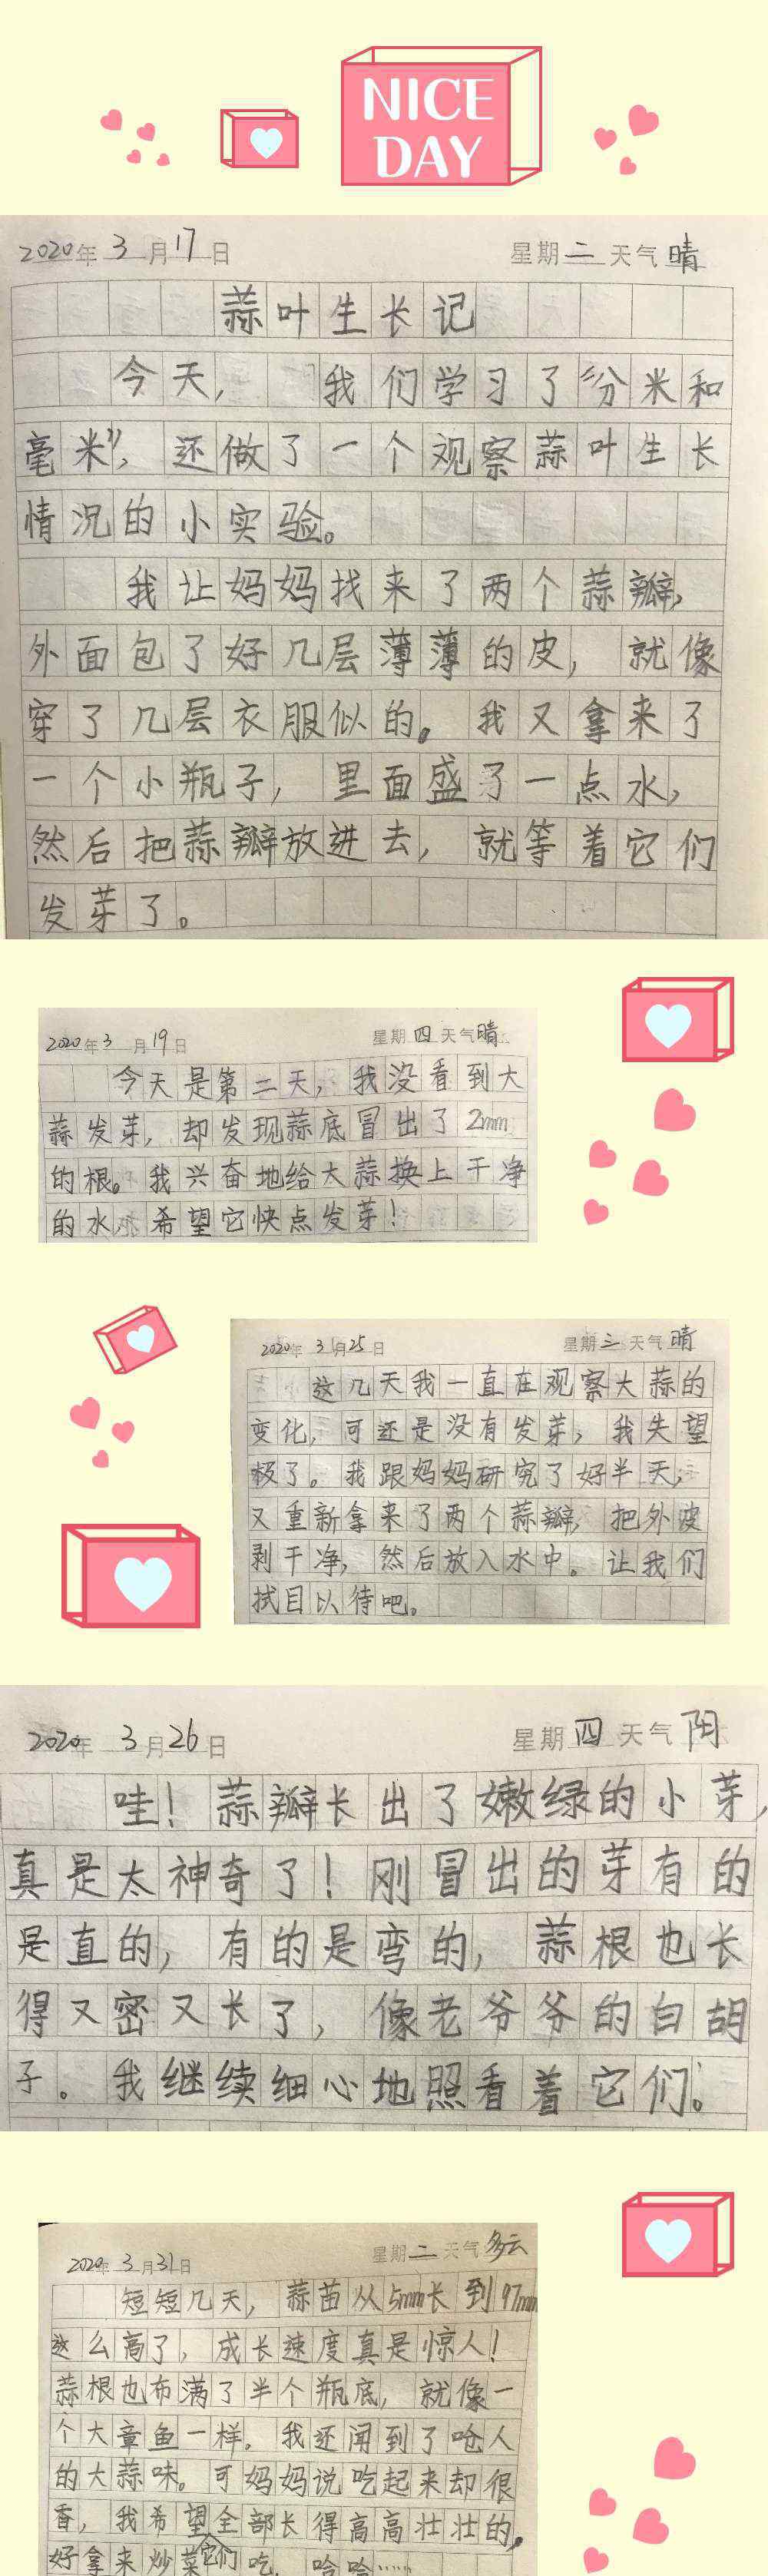 NICE
DAY
2020年3月17日 星期二天气晴
蒜叶生长记
今天,我们学习了“分米和
毫米”,还做了一个观察蒜叶生长
情况的小实验。
我让妈妈找来了两个蒜瓣,
外面包了好几层薄薄的皮,就像
穿了几层衣服似的。我又拿来了
一个小瓶子,里面盛了一点水,
然后把蒜瓣放进去,就等着它们
发芽了。
2020年3月19日 星期四天气晴
今天是第二天,我没看到大
蒜发芽,却发现蒜底冒出了2mm
的根。我兴奋地给大蒜换上干净
的水,希望它快点发芽!
2020年3月25日 星期三天气晴
这几天我一直在观察大蒜的
变化,可还是没有发芽,我失望
极了。我跟妈妈研究了好半天,
又重新拿来了两个蒜瓣,把外皮
剥干净,然后放入水中。让我们
拭目以待吧。
2020年3月26日 星期四天气阴
哇!蒜瓣长出了嫩绿的小芽,
真是太神奇了!刚冒出的芽有的
是直的,有的是弯的,蒜根也长
得又密又长了,像老爷爷的白胡
子。我继续细心地照看着它们。
2020年3月31日 星期二天气多云
短短几天,蒜苗从5mm长到97mm
这么高了,成长速度真是惊人!
蒜根也布满了半个瓶底,就像一
个大章鱼一样。我还闻到了呛人
的大蒜味。可妈妈说吃起来却很
香,我希望全部长得高高壮壮的,
好拿来炒菜它们吃,哈哈……